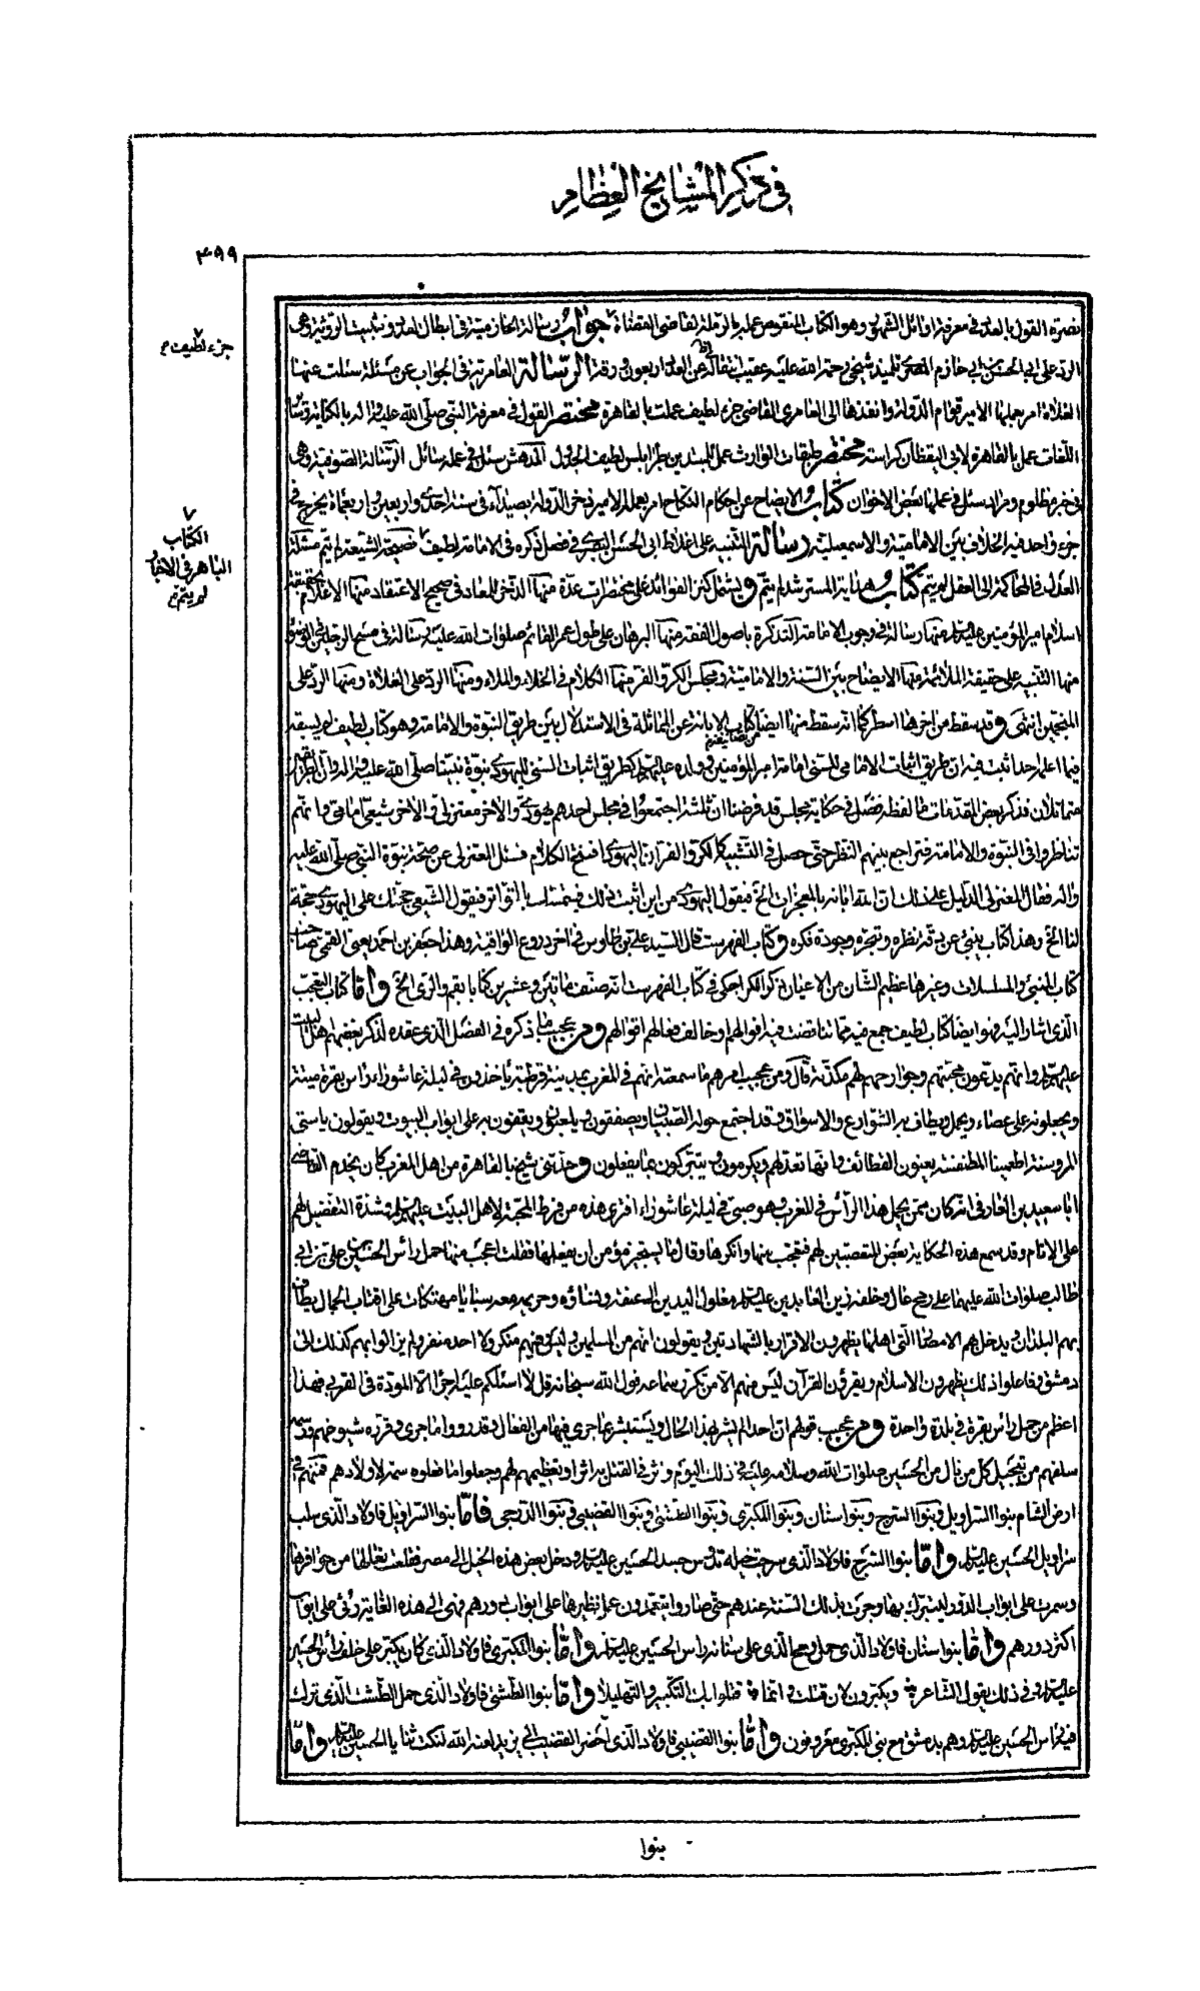 في ذكر المشايخ العظام
۴۹۹
جزء لطيف م
الكتاب
الباهر في الاخبار
لم يتم م
نصرة القول بالعدد في معرفة اوائل الشهور وهو الكتاب المنقوض عمله بالرملة لقاضي القضاة جواب رسالة الحازمية في ابطال العدد وتثبيت الرؤية وهي
الرد على ابي الحسن بن ابي حازم المصري تلميذ شيخي رحمة الله عليه عقيب انتقاله عن العدد اربعون ورقة الرسالة العامرية في الجواب عن مسئلة سئلت عنها
الغلاة امر بعملها الامير قوام الدولة وانفذها الى العامري القاضي جزء لطيف عملت بالقاهرة مختصر القول في معرفة النبي صلى الله عليه واله بالكتابة وسائر
اللغات عمل بالقاهرة لابي اليقظان كراسة مختصر طبقات الوارث عمل للمبتدئين بطرابلس لطيف الجدول المدهش سئل في عمله سائل الرسالة الصوفية وهي
في خبر مظلوم ومراد سئل في عملها بعض الاخوان كتاب الايضاح عن احكام النكاح امر بعمله الامير ذخر الدولة بصيداء في سنة احدى واربعين واربعمائة يخرج في
جزء واحد فيه الخلاف بين الامامية والاسمعيلية رسالة التنبيه على اغلاط ابي الحسن البصري في فصل ذكره في الامامة لطيف نصيحة الشيعة لم يتم مسئلة
العدل في المحاكمة الى العقل لم يتم كتاب هداية المسترشد لم يتم ويشتمل كنز الفوائد على مختصرات عدة منها الذخر للمعاد في صحيح الاعتقاد منها الاعلام بحقيقة
اسلام امير المؤمنين عليه السلام منها رسالة في وجوب الامامة التذكرة باصول الفقه منها البرهان على طول عمر القائم صلوات الله عليه رسالة في مسح الرجلين في الوضوء
منها التنبيه على حقيقة الملائمة منها الايضاح بين السنة والامامية ومجلس الكر والفر منها الكلام في الخلاء والملاء ومنها الرد على الغلاة ومنها الرد على
المنجمين انتهى وقد سقط من اخرها اسطر كما انه سقط منها ايضا كتاب الابانة عن المماثلة في الاستدلال بين طريق النبوة والامامة وهو كتاب لطيف لم يسبقه
فيما اعلم احد اثبت فيه ان طريق اثبات الامامي للسني امامة امير المؤمنين وولده عليهم السلام كطريق اثبات السني لليهودي نبوة نبينا صلى الله عليه واله وان الطريقين
متماثلان فذكر بعض المقدمات ما لفظه فصل في حكاية مجلس قد فرضنا ان ثلثة اجتمعوا في مجلس احدهم يهودي والاخر معتزلي والاخر شيعي امامي وانهم
تناظروا في النبوة والامامة فتراجع بينهم النظر حتى حصل في التشبيه كالكر والفر ان اليهودي افتتح الكلام فسئل المعتزلي عن صحة نبوة النبي صلى الله عليه
واله فقال المعتزلي الدليل على ذلك ان الله ابانه بالمعجزات الخ فيقول اليهودي من اين اثبت ذلك فيتمسك بالتواتر فيقول الشيعي حجتك على اليهودي حجة
لنا الخ وهذا كتاب ينبئ عن دقة نظره وتبحره وجودة فكره وكتاب الفهرست قال السيد علي بن طاوس في اخر دروع الواقية وهذا جعفر بن احمد يعني القمي صاحب
كتاب المنبئ والمسلسلات وغيرها عظيم الشان من الاعيان ذكر الكراجكي في كتاب الفهرست انه صنف مائتين وعشرين كتابا بقم والري الخ واما كتاب التعجب
الذي اشار اليه فهو ايضا كتاب لطيف جمع فيه مما تناقضت فيه اقوالهم او خالف فعالهم اقوالهم ومن عجيب ما ذكره في الفصل الذي عقده لذكر بغضهم اهل البيت
عليهم السلام وانهم يدعون محبتهم وجوارحهم لهم مكذبة قال ومن عجيب امرهم ما سمعته انهم في المغرب بمدينة قرطبة ياخذون في ليلة عاشوراء راس بقرة ميتة
ويجعلونه على عصاء ويحمل ويطاف به الشوارع والاسواق وقد اجتمع حوله الصبيان ويصفقون ويلعبون ويقفون به على ابواب البيوت ويقولون يا ستي
المروسنة اطعمينا المطنفسة يعنون القطائف وانها تعد لهم ويكرمون ويتبركون بما يفعلون وحدثني شيخ بالقاهرة من اهل المغرب كان يخدم القاضي
ابا سعيد بن العارفي انه كان ممن يحمل هذا الرأس في المغرب وهو صبي في ليلة عاشوراء افترى هذه من فرط المحبة لاهل البيت عليهم السلام وشدة التفضيل لهم
على الانام وقد سمع هذه الحكاية بعض المتعصبين لهم فتعجب منها وانكرها وقال ما يستجيز مؤمن ان يفعلها فقلت اعجب منها حمل رأس الحسين بن علي بن ابي
طالب صلوات الله عليهما على رمح عال وخلفه زين العابدين عليه السلام مغلول اليدين الى عنقه ونساؤه وحريمه معه سبايا مهتكات على اقتاب الجمال يطاف
بهم البلدان ويدخل بهم الامصار التي اهلها يظهرون الاقرار بالشهادتين ويقولون انهم من المسلمين وليس فيهم منكر ولا احد منفر ولم يزالوا بهم كذلك الى
دمشق وفاعلوا ذلك يظهرون الاسلام ويقرؤن القرآن ليس منهم الا من تكرر سماعه قول الله سبحانه قل لا اسئلكم عليه اجرا الا المودة في القربى فهذا
اعظم من حمل راس بقرة في بلدة واحدة ومن عجيب قولهم ان احدا لم يشر بهذا الحال ويستبشر بما جرى فيها من الفعال وقد رووا ما جرى وقرره شيوخهم ورسمه
سلفهم من تبجيل كل من نال من الحسين صلوات الله وسلامه عليه في ذلك اليوم واثر في القتل به اثرا وتعظيمهم لهم وجعلوا ما فعلوه سمة لاولادهم فمنهم في
ارض الشام بنوا السراويل وبنوا السرج وبنوا سنان وبنوا المكبري وبنوا الطشتي وبنوا القضيبي وبنوا الدرجي فاما بنوا السراويل فاولاد الذي سلب
سراويل الحسين عليه السلام واما بنوا السرج فاولاد الذي سرجت خيله تدوس جسد الحسين عليه السلام ودخل بعض هذه الخيل الى مصر فقلعت نعالها من حوافرها
وسمرت على ابواب الدور ليتبرك بها وجرت بذلك السنة عندهم حتى صاروا يتعمدون عمل نظيرها على ابواب دورهم فهي الى هذه الغاية ترى على ابواب
اكثر دورهم واما بنوا سنان فاولاد الذي حمل الرمح الذي على سنانه راس الحسين عليه السلام واما بنوا المكبري فاولاد الذي كان يكبر على خلف رأس الحسين
عليه السلام وفي ذلك يقول الشاعر ويكبرون لان قتلت وانما قتلوا بك التكبير والتهليلا واما بنوا الطشتي فاولاد الذي حمل الطشت الذي ترك
فيه راس الحسين عليه السلام وهم بدمشق مع بني المكبري معروفون واما بنوا القضيبي فاولاد الذي احضر القضيب الى يزيد لعنه الله لنكت ثنايا الحسين عليه السلام واما
بنوا